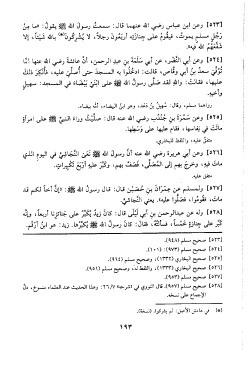 [٥٢٣] وعن ابن عباس رضي الله عنهما قال: سمعتُ رسول الله ﷺ يقول: «ما مِنْ
رَجُلٍ مسلمٍ يموت، فيقومُ على جنازتِه أربعون رجلاً، لا يُشركون(*) بالله شيئاً، إلا
شفَّعهم الله فيه».
[٥٢٤] وعن أبي النَّضْر، عن أبي سَلَمة بن عبد الرحمن، أنَّ عائشةَ رضي الله عنها لمَّا
تُوفِّي سعدُ بن أبي وقّاص، قالت: ادخُلوا به المسجدَ حتى أُصلِّي عليه، فأُنكِرَ ذلك
عليها، فقالت: والله لقد صلَّى رسولُ الله ﷺ على ابنَي بَيْضاء في المسجد: سهيلٍ
وأخيه.
رواهما مسلم، وقال: سُهيلُ بنُ دَعْد، وهو ابنُ البيضاء، أمُّه بيضاء.
[٥٢٥] وعن سَمُرة بن جُنْدُب رضي الله عنه قال: صلَّيتُ وراءَ النبيِّ ﷺ على امرأةٍ
ماتت في نِفاسها، فقام عليها على وسَطِها.
متفق عليه، واللفظ للبخاري.
[٥٢٦] وعن أبي هريرة رضي الله عنه أنَّ رسولَ الله ﷺ نَعَى النجاشيَّ في اليوم الذي
ماتَ فيه، وخرجَ بهم إلى المُصلَّى، فصَفَّ بهم، وكبَّر عليه أربعَ تكبيرات.
متفق عليه.
[٥٢٧] ولمسلم عن عِمران بن حُصَيْن قال: قال رسول الله ﷺ: «إنَّ أخاً لكم قد
مات، فقُوموا، فصَلُّوا عليه». يعني النجاشيَّ.
[٥٢٨] وله عن عبدالرحمن بن أبي لَيْلى قال: كانَ زيدٌ يُكبِّرُ على جنائزنا أربعاً، وإنَّه
كبَّر على جِنازةٍ خمساً، فسألتُه، فقال: كانَ رسولُ الله ﷺ يُكبِّرُها. زيد: هو ابنُ أرقَم.
[٥٢٣] صحيح مسلم (٩٤٨).
[٥٢٤] صحيح مسلم (٩٧٣): (١٠١).
[٥٢٥] صحيح البخاري (١٣٣٢)، وصحيح مسلم (٩٦٤).
[٥٢٦] صحيح البخاري (١٣٣٣)، واللفظ له، وصحيح مسلم (٩٥١).
[٥٢٧] صحيح مسلم (٩٥٣).
[٥٢٨] صحيح مسلم (٩٥٧). قال النووي في «شرحه» ٢٦/٧: وهذا الحديث عند العلماء منسوخ، دلَّ
الإجماع على نسخه.
(*) في هامش الأصل: لم يشركوا (نسخة).
١٩٣